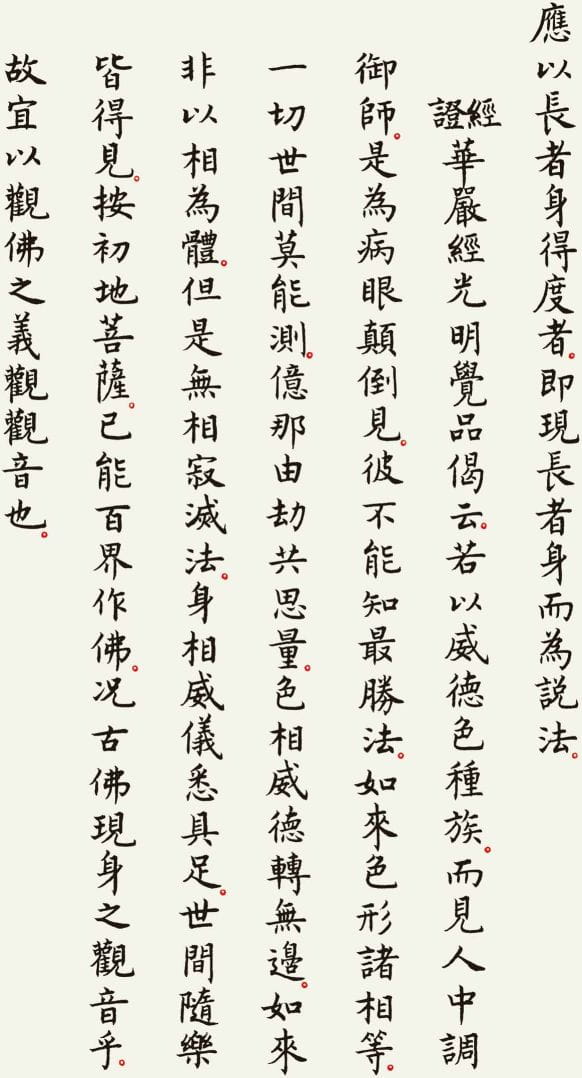 應以長者身得度者。即現長者身而為說法。
經證 華嚴經光明覺品偈云。若以威德色種族。而見人中調
御師。是為病眼顛倒見。彼不能知最勝法。如來色形諸相等。
一切世間莫能測。億那由劫共思量。色相威德轉無邊。如來
非以相為體。但是無相寂滅法。身相威儀悉具足。世間隨樂
皆得見。按初地菩薩。已能百界作佛。況古佛現身之觀音乎。
故宜以觀佛之義觀觀音也。